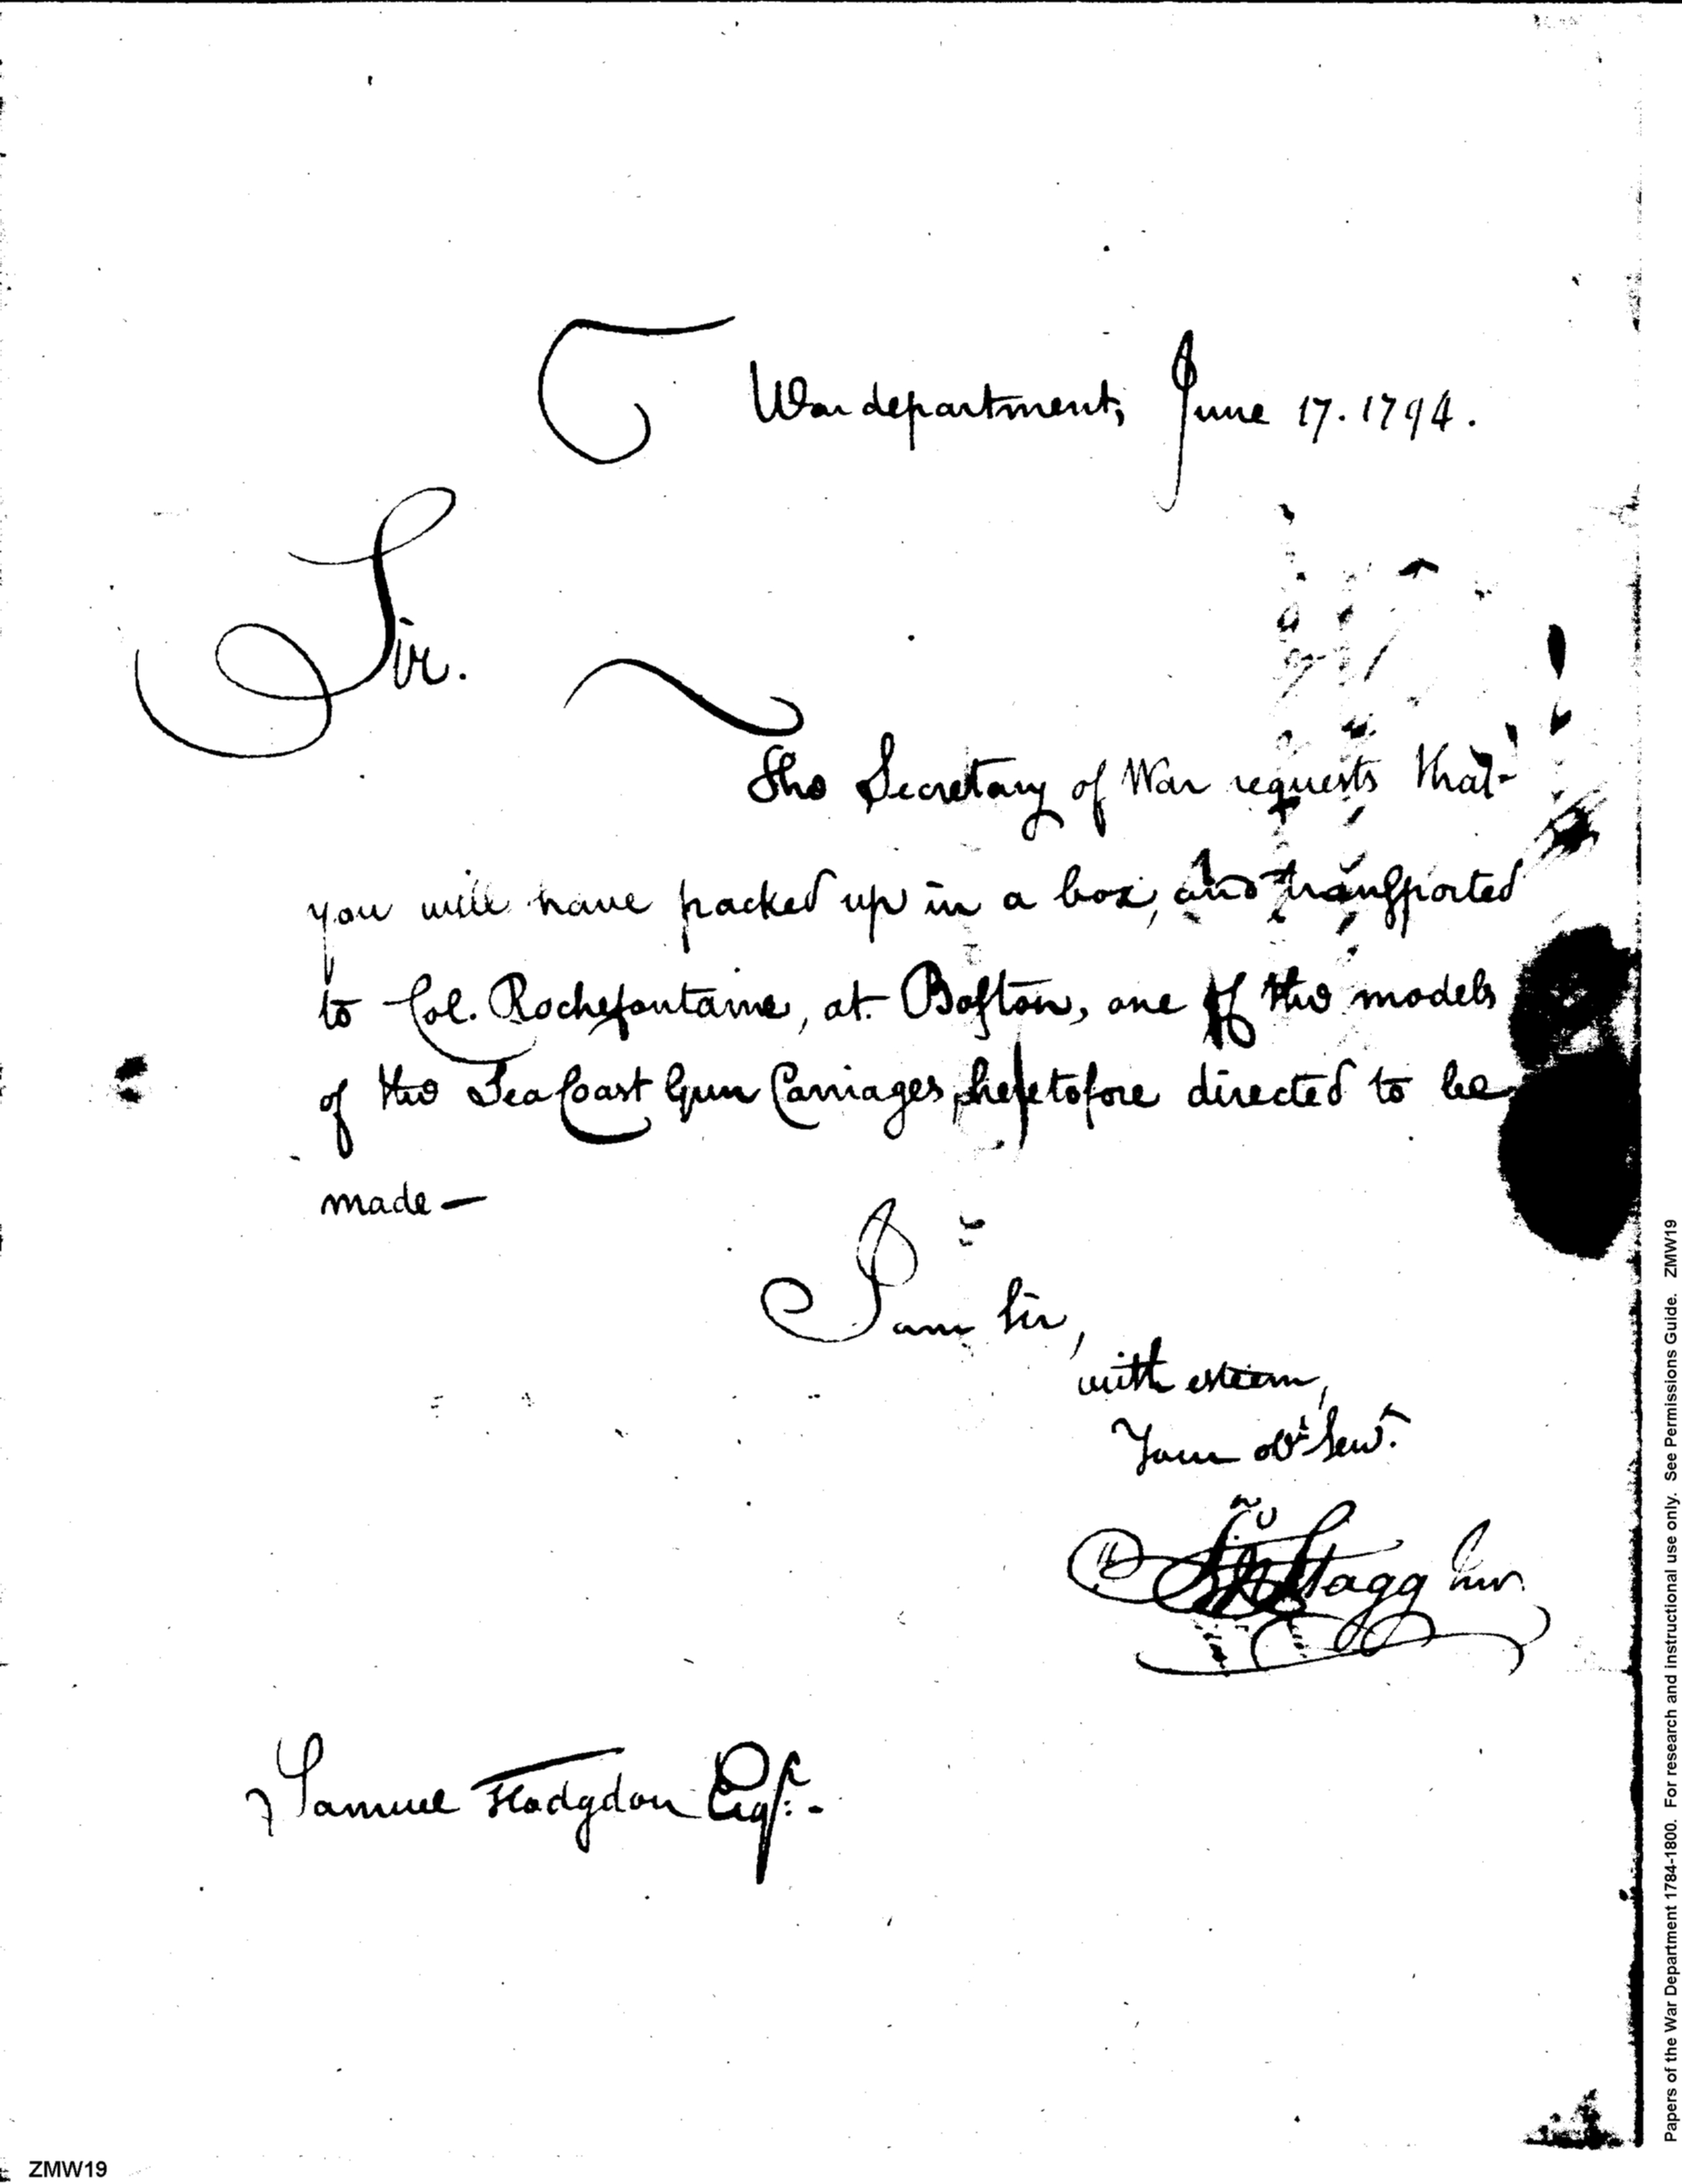 War department, June 17. 1794.
Sir.
The Secretary of War requests that
you will have packed up in a box, and transported
to Col. Rochefontaine, at Boston, one of the models
of the Sea Coast Gun Carriages, heretofore directed to be
made —
I am Sir,
with esteem,
Your obt Servt.
Jno Stagg Junr.
Samuel Hodgdon Esqr.
ZMW19
Papers of the War Department 1784-1800. For research and instructional use only. See Permissions Guide. ZMW19